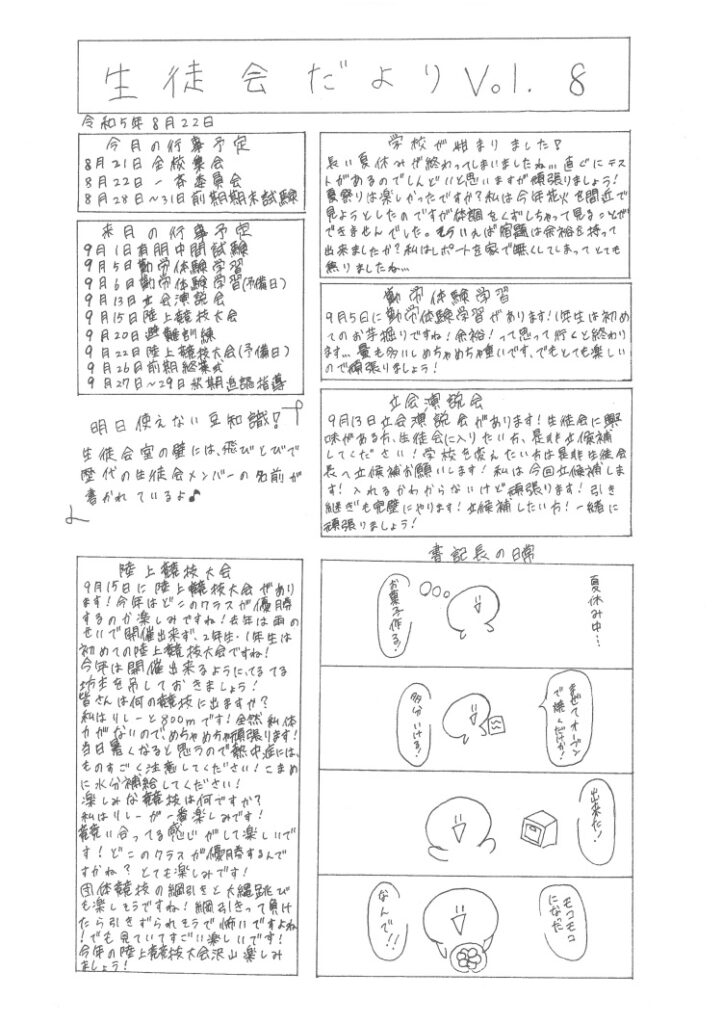 生徒会だより Vol. 8
令和5年8月22日
今月の行事予定
8月21日 全校集会
8月22日 一斉委員会
8月28日〜31日 前期期末試験
来月の行事予定
9月1日 前期中間試験
9月5日 勤労体験学習
9月6日 勤労体験学習(予備日)
9月13日 立会演説会
9月15日 陸上競技大会
9月20日 避難訓練
9月22日 陸上競技大会(予備日)
9月26日 前期終業式
9月27日〜29日 秋期追認指導
明日使えない豆知識!
生徒会室の壁には、飛びとびで
歴代の生徒会メンバーの名前が
書かれているよ♪
陸上競技大会
9月15日に陸上競技大会があり
ます!今年はどこのクラスが優勝
するのか楽しみですね!去年は雨の
せいで開催出来ず、2年生・1年生は
初めての陸上競技大会ですね!
今年は開催出来るように、てるてる
坊主を吊しておきましょう!
皆さんは何の競技に出ますか?
私はリレーと800mです!全然私体
力がないので、めちゃめちゃ頑張ります!
当日暑くなると思うので熱中症には、
ものすごく注意してください!こまめ
に水分補給してください!
楽しみな競技は何ですか?
私はリレーが一番楽しみです!
競い合ってる感じがして楽しいで
す!どこのクラスが優勝するんで
すかね?とても楽しみです!
団体競技の綱引きと大縄跳び
も楽しそうですね!綱引きって負け
たら引きずられそうで怖いですよね
!でも見ていてすごい楽しいです!
今年の陸上競技大会沢山楽しみ
ましょう!
学校が始まりました!
長い夏休みが終わってしまいましたね...直ぐにテス
トがあるのでしんどいと思いますが頑張りましょう!
夏祭りは楽しかったですか?私は今年花火を間近で
見ようとしたのですが体調をくずしちゃって見ることがで
できませんでした。そういえば宿題は余裕を持って
出来ましたか?私はレポートを家で無くしてしまってとても
焦りましたね...
勤労体験学習
9月5日に勤労体験学習があります!1年生は初め
てのお芋掘りですね!余裕!って思って行くと終わり
ます...量も多いしめちゃめちゃ重いです、でもとても楽しい
ので頑張りましょう!
立会演説会
9月13日立会演説会があります!生徒会に興
味がある方、生徒会に入りたい方、是非立候補
してください!学校を変えたい方は是非生徒会
長へ立候補お願いします!私は今回立候補しま
す!入れるかわからないけど頑張ります!引き
継ぎも完璧にやります!立候補したい方!一緒に
頑張りましょう!
書記長の日常
夏休み中...
お菓子作る?
まぜてオーブン
で焼くだけか!
多分いける!
出来た!
モコモコ
になった
なんで!!